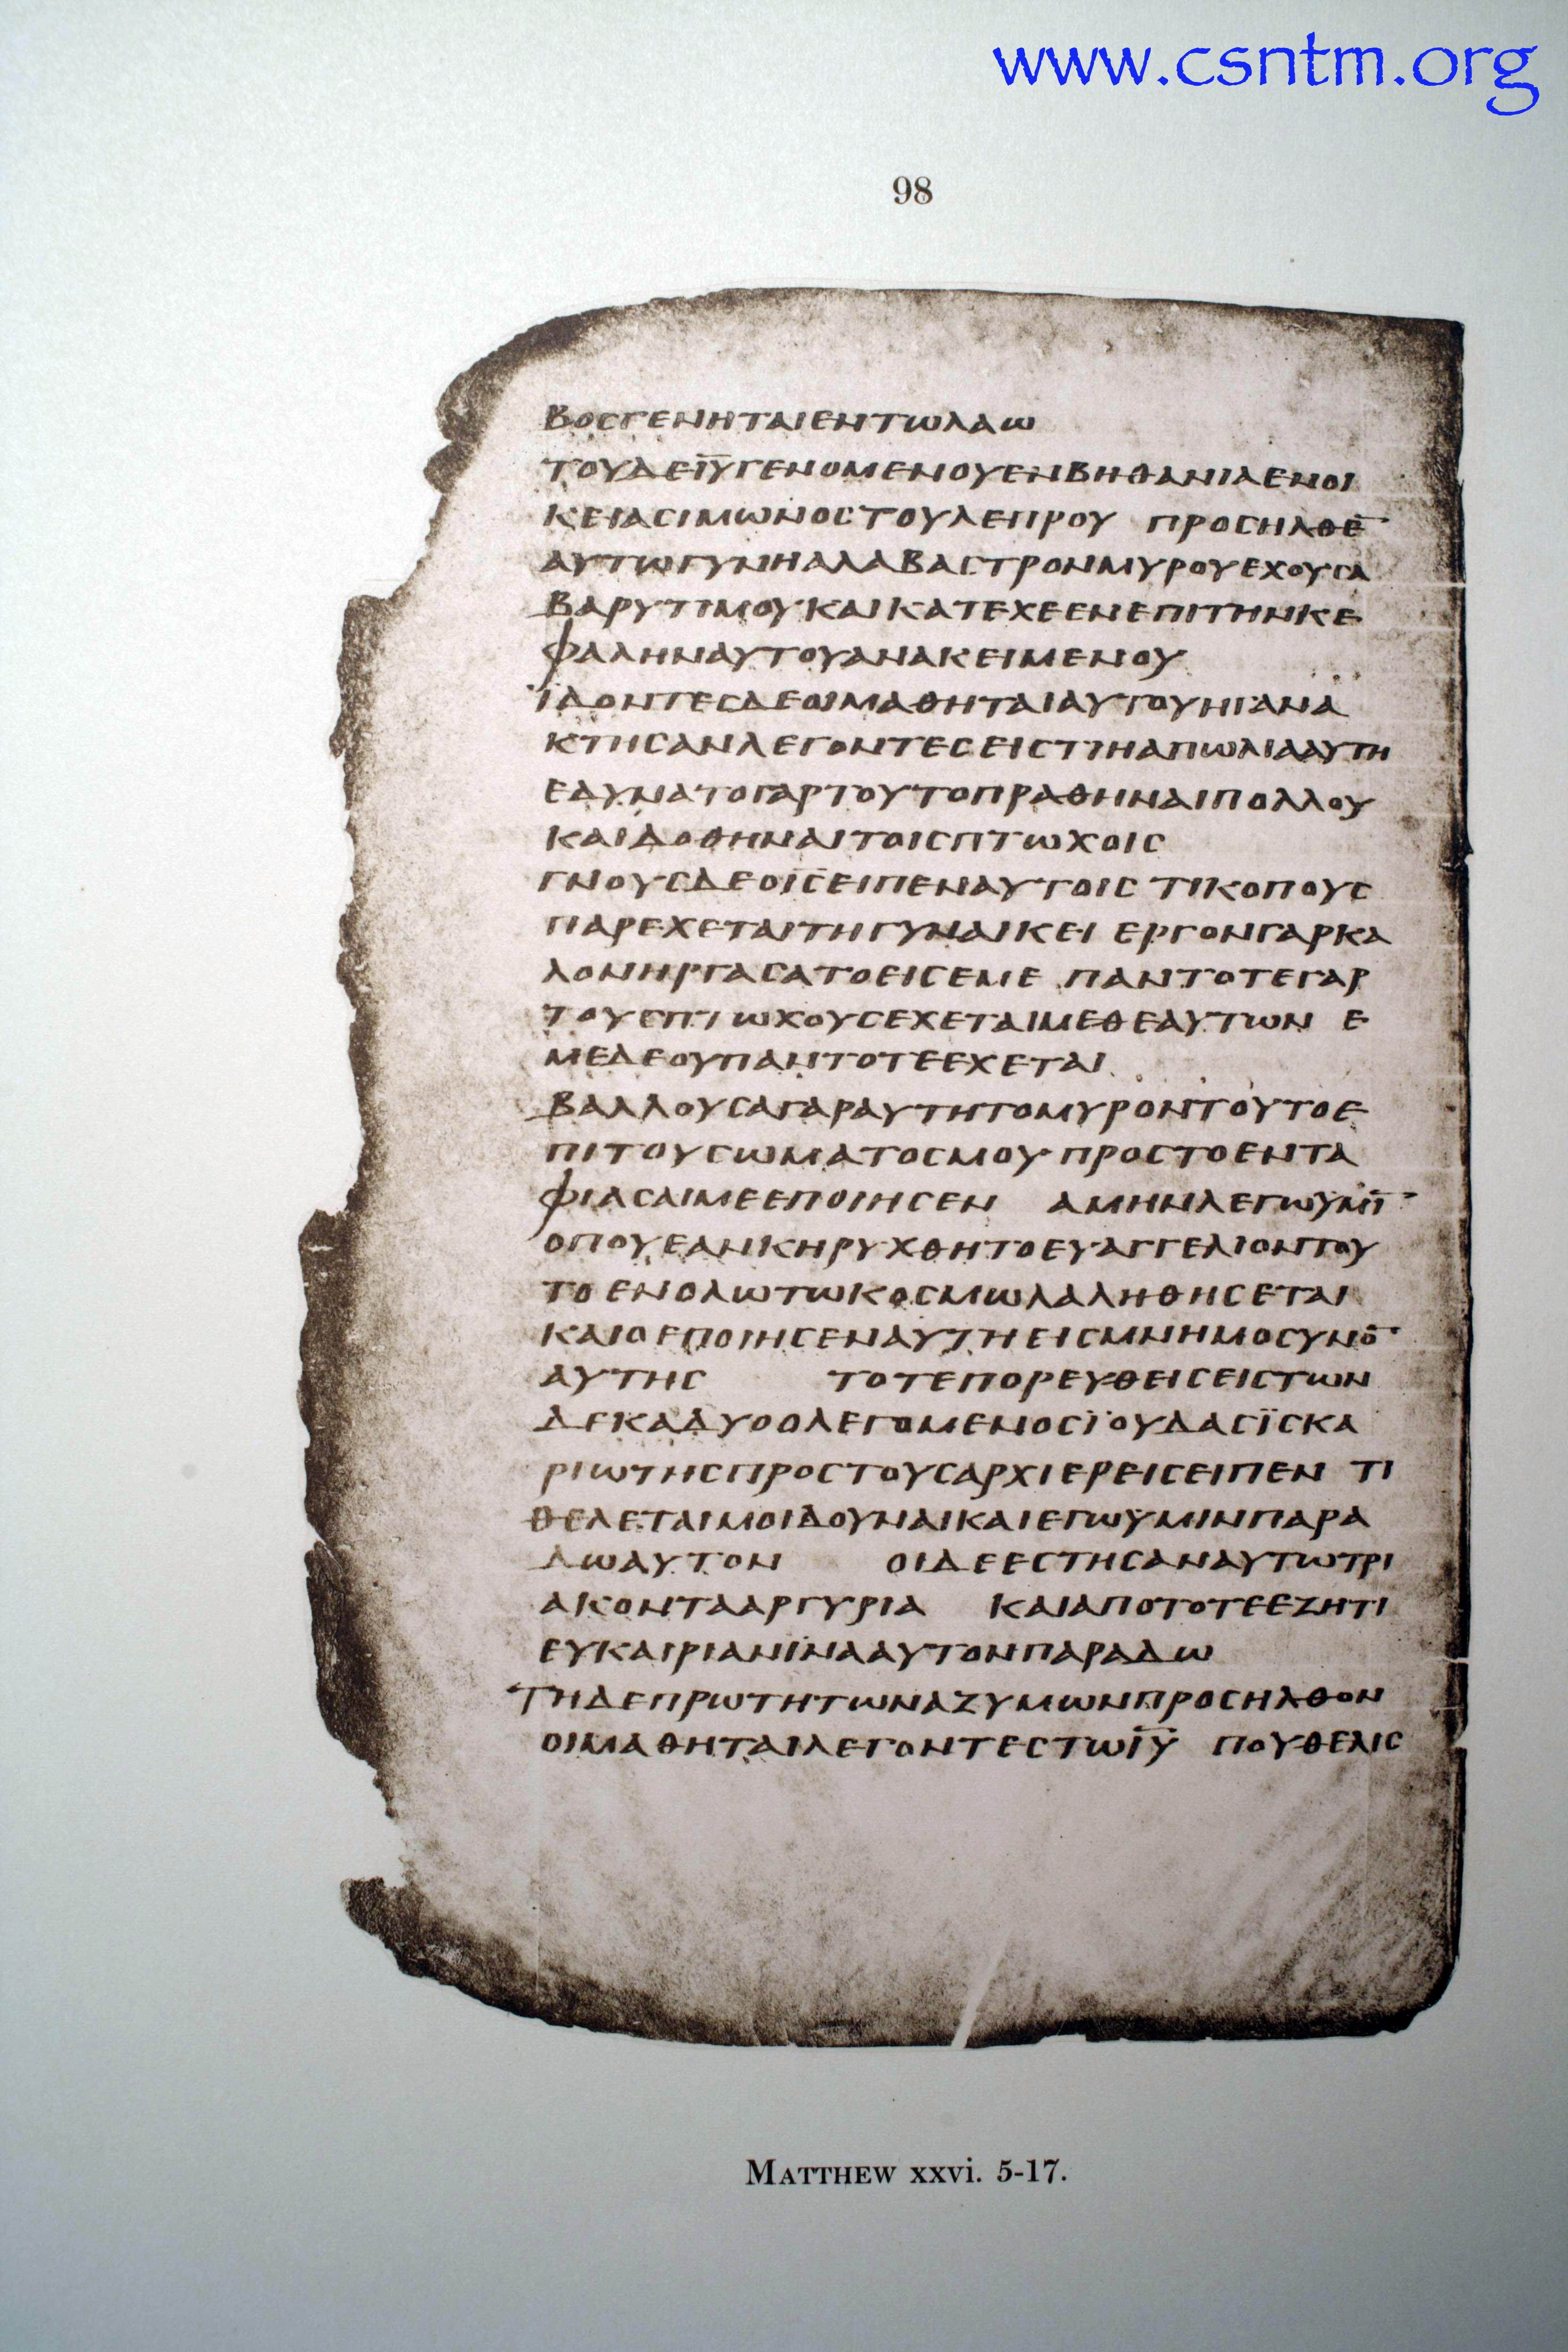 www.csntm.org
98
ΒΟϹΓΕΝΗΤΑΙΕΝΤΩΛΑΩ
ΤΟΥΔΕΙ̅Υ̅ΓΕΝΟΜΕΝΟΥΕΝΒΗΘΑΝΙΑΕΝΟΙ
ΚΕΙΑϹΙΜΩΝΟϹΤΟΥΛΕΠΡΟΥ ΠΡΟϹΗΛΘΕ̅
ΑΥΤΩΓΥΝΗΑΛΑΒΑϹΤΡΟΝΜΥΡΟΥΕΧΟΥϹΑ
ΒΑΡΥΤΙΜΟΥΚΑΙΚΑΤΕΧΕΕΝΕΠΙΤΗΝΚΕ
ΦΑΛΗΝΑΥΤΟΥΑΝΑΚΕΙΜΕΝΟΥ
ΪΔΟΝΤΕϹΔΕΟΙΜΑΘΗΤΑΙΑΥΤΟΥΗΓΑΝΑ
ΚΤΗϹΑΝΛΕΓΟΝΤΕϹΕΙϹΤΙΗΑΠΩΛΙΑΑΥΤΗ
ΕΔΥΝΑΤΟΓΑΡΤΟΥΤΟΠΡΑΘΗΝΑΙΠΟΛΛΟΥ
ΚΑΙΔΟΘΗΝΑΙΤΟΙϹΠΤΩΧΟΙϹ
ΓΝΟΥϹΔΕΟΙ̅Ϲ̅ΕΙΠΕΝΑΥΤΟΙϹ ΤΙΚΟΠΟΥϹ
ΠΑΡΕΧΕΤΑΙΤΗΓΥΝΑΙΚΕΙ ΕΡΓΟΝΓΑΡΚΑ
ΛΟΝΗΡΓΑϹΑΤΟΕΙϹΕΜΕ ΠΑΝΤΟΤΕΓΑΡ
ΤΟΥϹΠΤΩΧΟΥϹΕΧΕΤΑΙΜΕΘΕΑΥΤΩΝ Ε
ΜΕΔΕΟΥΠΑΝΤΟΤΕΕΧΕΤΑΙ
ΒΑΛΛΟΥϹΑΓΑΡΑΥΤΗΤΟΜΥΡΟΝΤΟΥΤΟΕ
ΠΙΤΟΥϹΩΜΑΤΟϹΜΟΥΠΡΟϹΤΟΕΝΤΑ
ΦΙΑϹΑΙΜΕΕΠΟΙΗϹΕΝ ΑΜΗΝΛΕΓΩΫΜΙ̅
ΟΠΟΥΕΑΝΚΗΡΥΧΘΗΤΟΕΥΑΓΓΕΛΙΟΝΤΟΥ
ΤΟΕΝΟΛΩΤΩΚΟϹΜΩΛΑΛΗΘΗϹΕΤΑΙ
ΚΑΙΟΕΠΟΙΗϹΕΝΑΥΤΗΕΙϹΜΝΗΜΟϹΥΝΟ̅
ΑΥΤΗϹ ΤΟΤΕΠΟΡΕΥΘΕΙϹΕΙϹΤΩΝ
ΔΕΚΑΔΥΟΟΛΕΓΟΜΕΝΟϹΪΟΥΔΑϹΪϹΚΑ
ΡΙΩΤΗϹΠΡΟϹΤΟΥϹΑΡΧΙΕΡΕΙϹΕΙΠΕΝ ΤΙ
ΘΕΛΕΤΑΙΜΟΙΔΟΥΝΑΙΚΑΙΕΓΩΫΜΙΝΠΑΡΑ
ΔΩΑΥΤΟΝ ΟΙΔΕΕϹΤΗϹΑΝΑΥΤΩΤΡΙ
ΑΚΟΝΤΑΑΡΓΥΡΙΑ ΚΑΙΑΠΟΤΟΤΕΕΖΗΤΙ
ΕΥΚΑΙΡΙΑΝΪΝΑΑΥΤΟΝΠΑΡΑΔΩ
ΤΗΔΕΠΡΩΤΗΤΩΝΑΖΥΜΩΝΠΡΟϹΗΛΘΟΝ
ΟΙΜΑΘΗΤΑΙΛΕΓΟΝΤΕϹΤΩΙ̅Υ̅ ΠΟΥΘΕΛΙϹ
MATTHEW xxvi. 5-17.